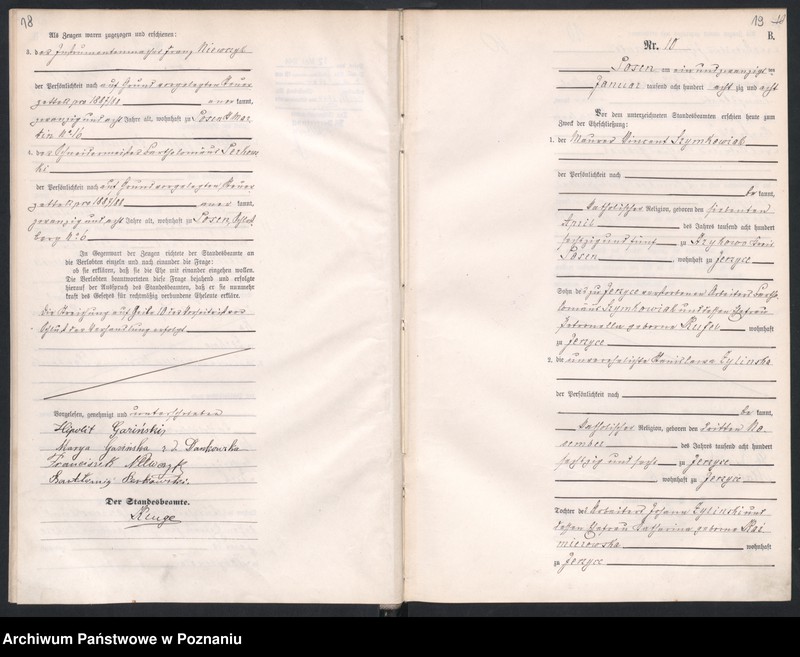 18
Als Zeugen waren zugezogen und erschienen:
3. der Instrumentenmacher Franz Niewczyk
der Persönlichkeit nach auf Grund vorgelegten Steuer
zettels pro 1887/88 kannt,
zwanzig und acht Jahre alt, wohnhaft zu Posen St Mar
tin No 6
4. der Schneidermeister Bartholomäus Berkows
ki
der Persönlichkeit nach auf Grund vorgelegten Steuer
zettels pro 1887/88 kannt,
zwanzig und acht Jahre alt, wohnhaft zu Posen, Schloß
berg No 6
In Gegenwart der Zeugen richtete der Standesbeamte an
die Verlobten einzeln und nach einander die Frage:
ob sie erklären, daß sie die Ehe mit einander eingehen wollen.
Die Verlobten beantworteten diese Frage bejahend und erfolgte
hierauf der Ausspruch des Standesbeamten, daß er sie nunmehr
kraft des Gesetzes für rechtmäßig verbundene Eheleute erkläre.
Die Streichung auf Seite
Schluß der Verhandlung erfolgt
Vorgelesen, genehmigt und unterschrieben
Hipolit Gasiński
Marya Gasińska z d. Dankowska
Franciszek Niewczyk
Bartłomiej Berkowski
Der Standesbeamte.
19
B.
Nr. 10
Posen am ein und zwanzigsten
Januar tausend acht hundert acht zig und acht
Vor dem unterzeichneten Standesbeamten erschien heute zum
Zweck der Eheschließung:
1. der Maurer Vincent Szymkowiak
der Persönlichkeit nach
be kannt,
katholischer Religion, geboren den siebenten
April des Jahres tausend acht hundert
sechzig und fünf zu Krzykowo Kreis
Posen, wohnhaft zu Jerzyce
Sohn des zu Jerzyce verstorbenen Arbeiters Barth
lomäus Szymkowiak und dessen Ehefrau
Petronella geborne wohnhaft
zu Jerzyce
2. die unverehelichte Stanislawa Zylinska
der Persönlichkeit nach
be kannt,
katholischer Religion, geboren den dritten No
vember des Jahres tausend acht hundert
sechzig und sechs zu Jerzyce
, wohnhaft zu Jerzyce
Tochter des Arbeiters Johann Zylinski und
dessen Ehefrau Katharina geborne Kaz
mierowska wohnhaft
zu Jerzyce
Archiwum Państwowe w Poznaniu